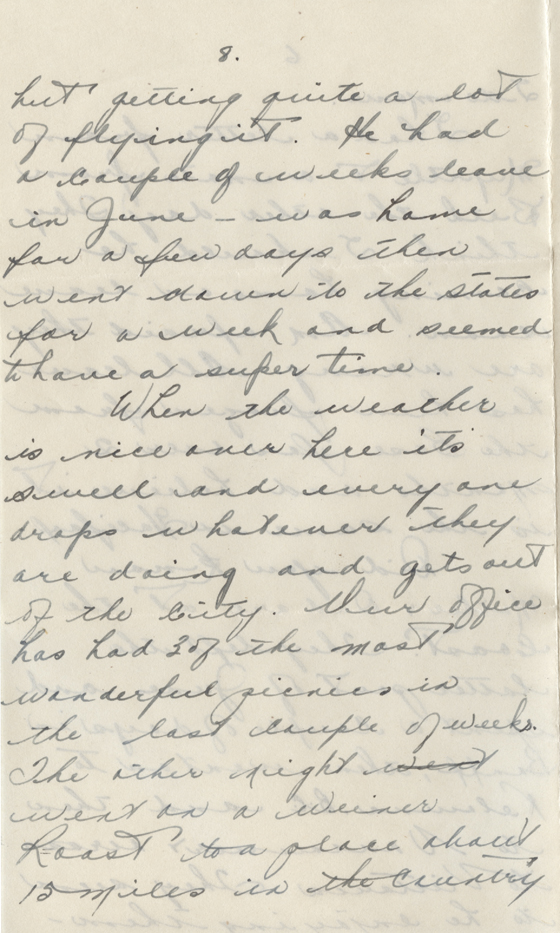 8.
but getting quite a lot
of flying it. He had
a couple of weeks leave
in June - was home
for a few days then
went down to the states
for a week and seemed
t have a super time.
When the weather
is nice over here its
swell and every one
drops whatever they
are doing and gets out
of the City. Our office
has had 3 of the most
wonderful picnics in
the last couple of weeks.
The other night went
went on a weiner
Roast to a place about
15 miles in the Country